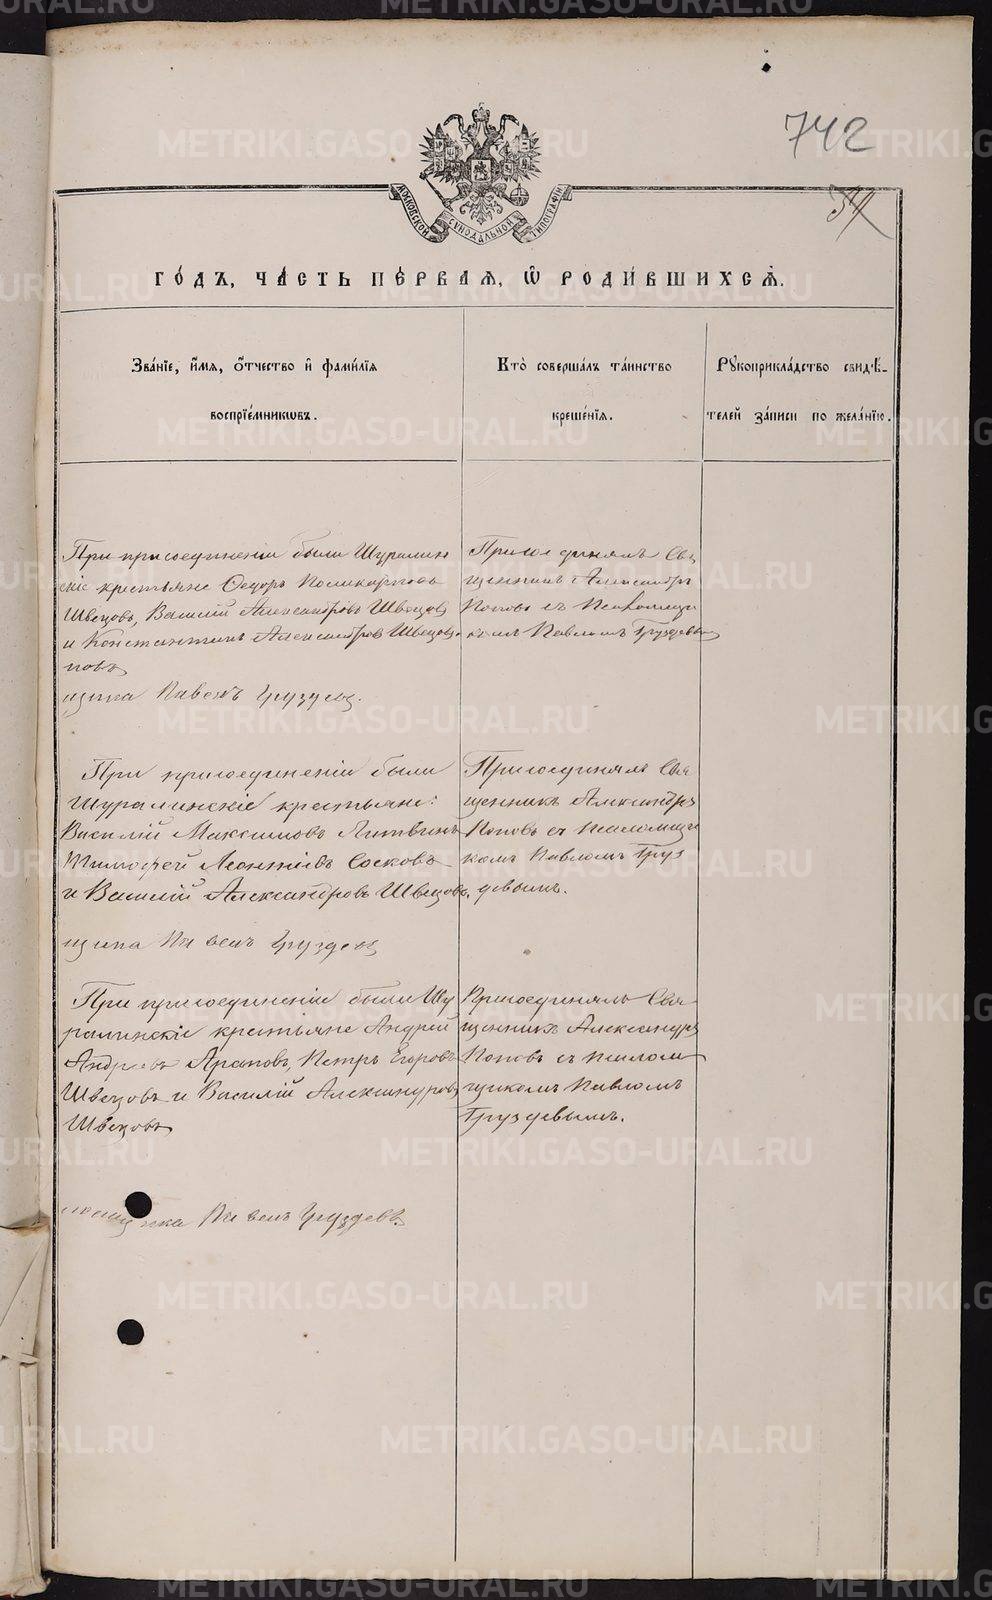 742
МОСКОВСКОЙ СѴНОДАЛЬНОЙ ТИПОГРАФІИ
ГО́ДЪ, ЧА́СТЬ ПЕ́РВАЯ, Ѡ҆ РОДИ́ВШИХСѦ.
Зва́нїе, и҆́мя, ѻ҆́тчество и҆ фами́лїя
воспрїе́мникѡвъ.
Кто̀ соверша́лъ та́инство
креще́нїя.
Рꙋкоприкла́дство свидѣ́-
телей за́писи по жела́нїю.
При присоединеніи были Шуралин
скіе крестьяне Ѳедоръ Поликарповъ
Швецовъ, Василій Александровъ Швецовъ
и Константинъ Александровъ Швецовъ.
повъ
щика Павелъ Груздев.
Присоединялъ Свя
щенникъ Александръ
Поповъ съ Псаломщи
комъ Павломъ Груздевымъ
При присоединеніи были
Шуралинскіе крестьяне:
Василій Максимовъ Литвинъ
Тимофей Леонтіевъ Сосковъ
и Василій Александровъ Швецовъ.
щика Павелъ Груздев
Присоединялъ Свя
щенникъ Александръ
Поповъ съ Псаломщи
комъ Павломъ Груз
девымъ.
При присоединеніи были Шу
ралинскіе крестьяне Андрей
Андреевъ Араповъ, Петръ Егоровъ
Швецовъ и Василій Александровъ
Швецовъ
Павелъ Груздевъ
Присоединялъ Свя
щенникъ Александръ
Поповъ съ псалом
щикомъ Павломъ
Груздевымъ.
METRIKI.GASO-URAL.RU